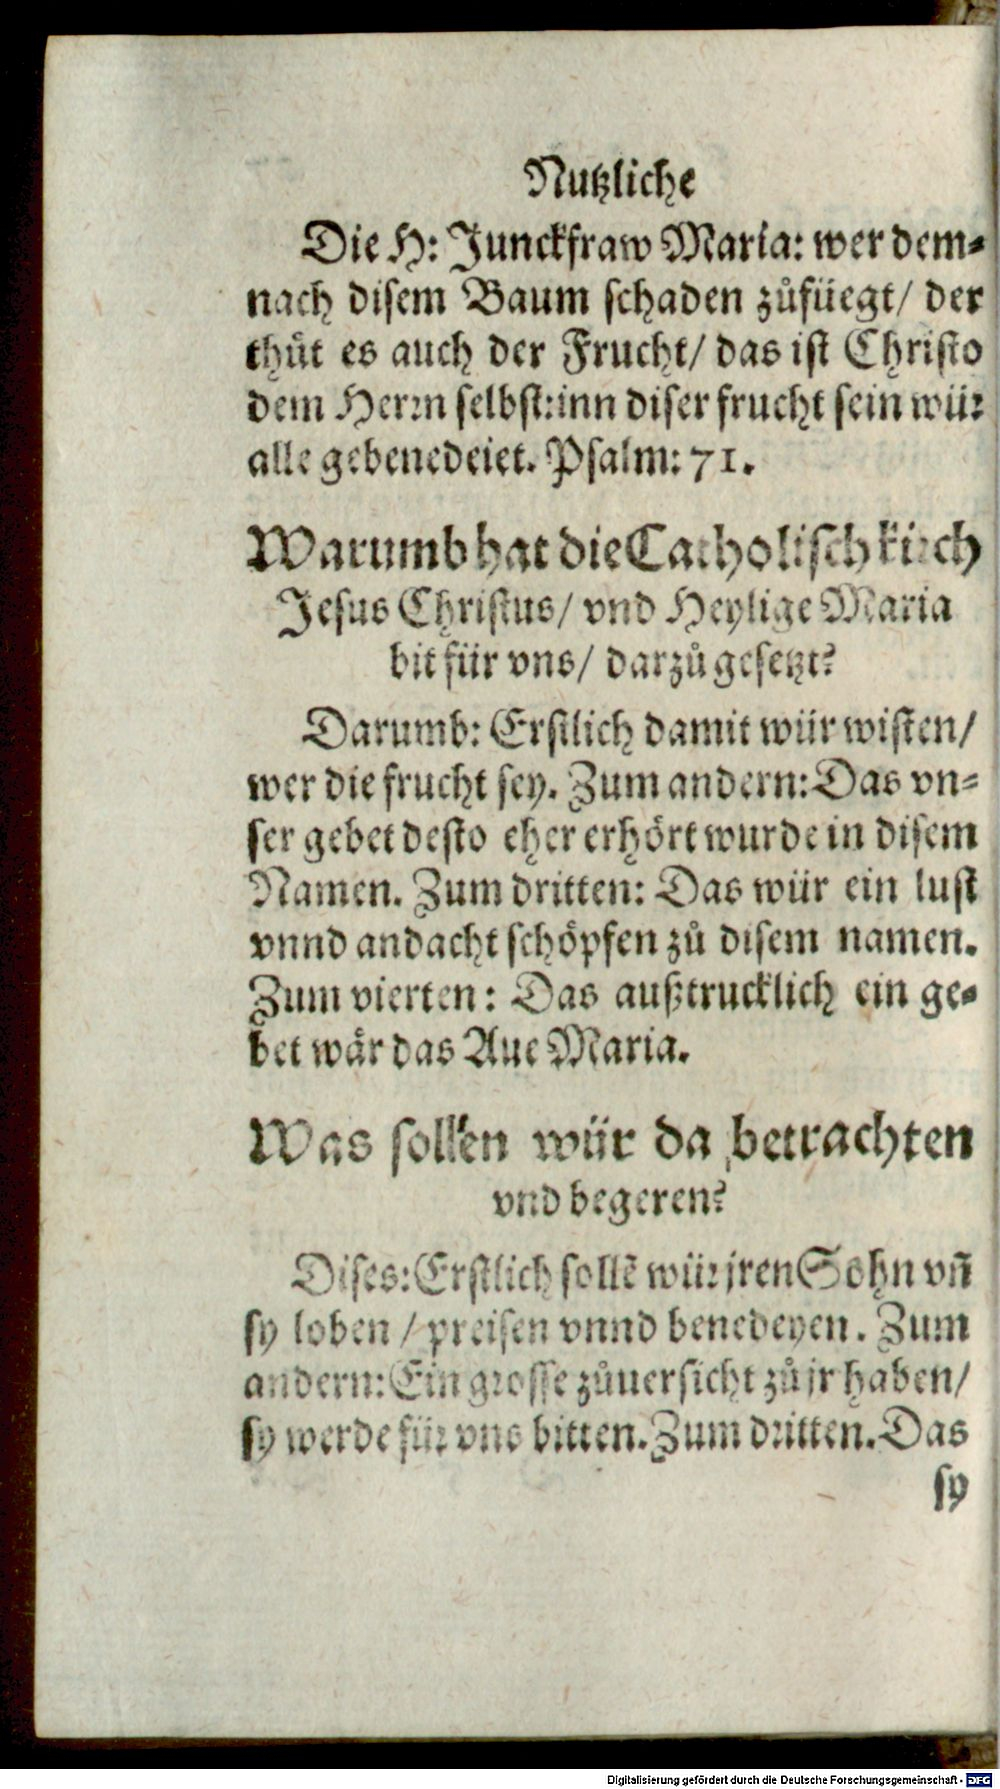 Nutzliche
Die H: Junckfraw Maria: wer dem⸗
nach disem Baum schaden zůfüegt/ der
thůt es auch der Frucht/ das ist Christo
dem Herrn selbst: inn diser frucht sein wür
alle gebenedeiet. Psalm: 71.
Warumb hat die Catholisch kirch
Jesus Christus/ vnd Heylige Maria
bit für vns/ darzů gesetzt?
Darumb: Erstlich damit wür wisten/
wer die frucht sey. Zum andern: Das vn⸗
ser gebet desto eher erhört wurde in disem
Namen. Zum dritten: Das wür ein lust
vnnd andacht schöpfen zů disem namen.
Zum vierten: Das außtrucklich ein ge⸗
bet wär das Aue Maria.
Was sollen wür da betrachten
vnd begeren?
Dises: Erstlich sollẽ wür jren Sohn vñ
sy loben / preisen vnnd benedeyen. Zum
andern: Ein grosse zůuersicht zů jr haben/
sy werde für vns bitten. Zum dritten. Das
sy
Digitalisierung gefördert durch die Deutsche Forschungsgemeinschaft - DFG